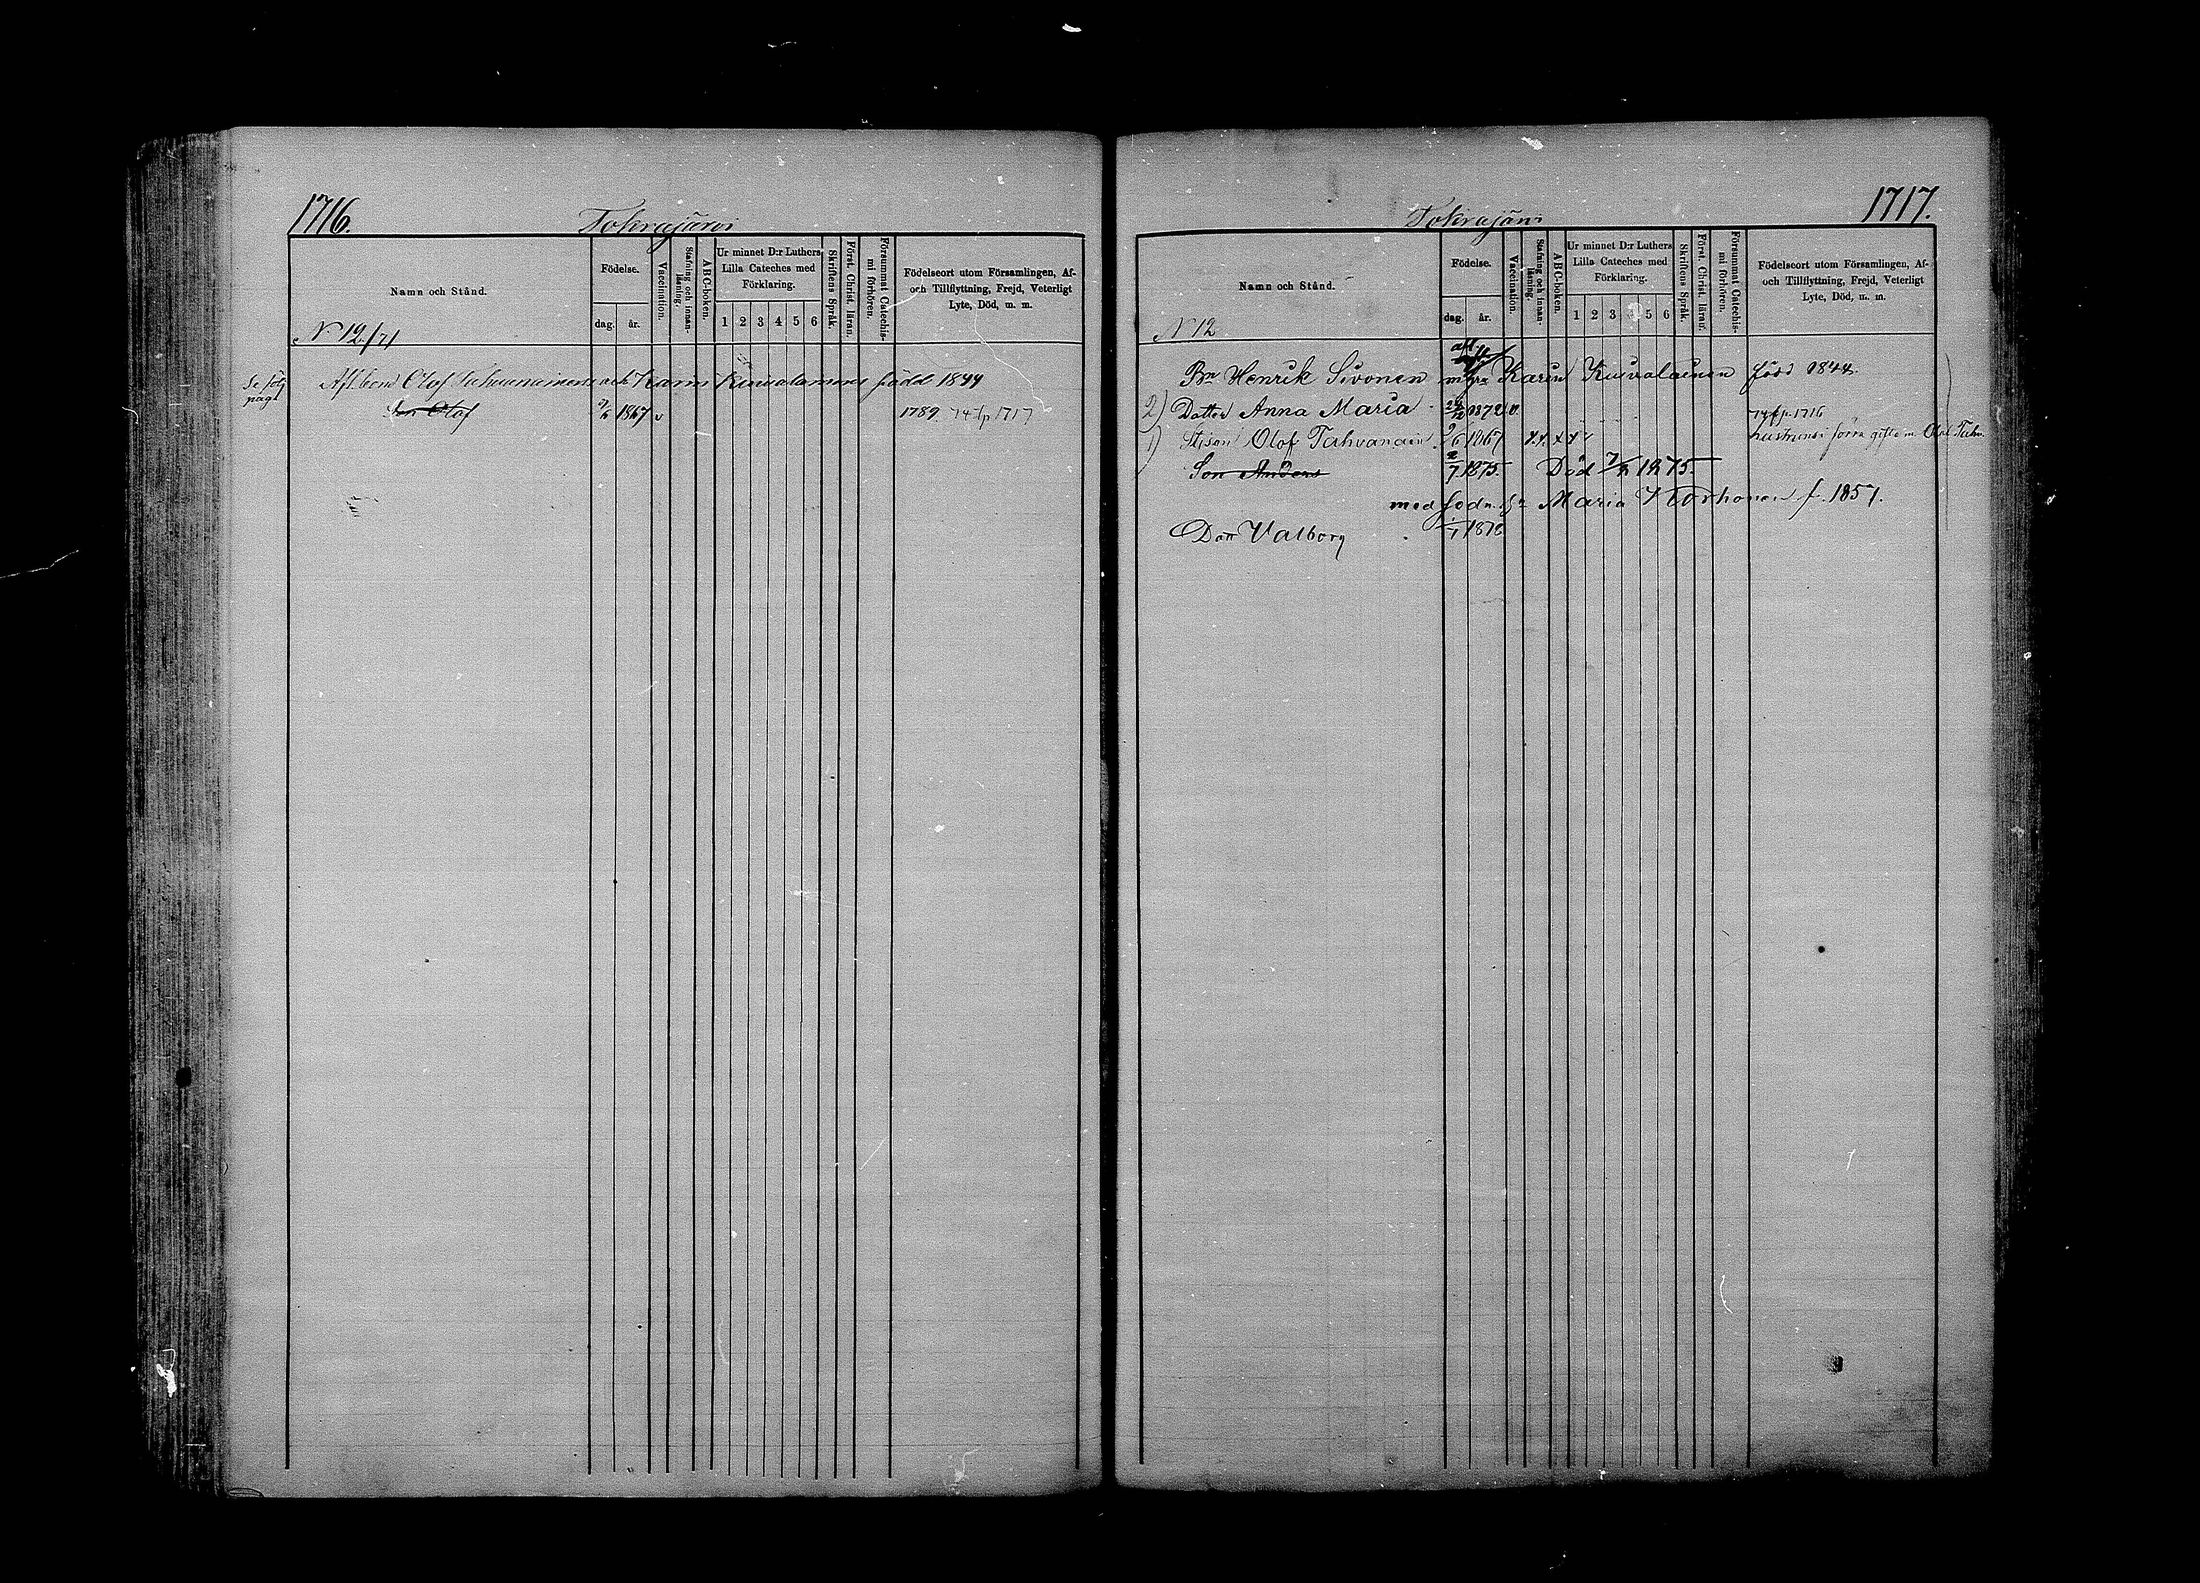 1716.
Tokrajärvi
Namn och Stånd.
Födelse.
dag. år.
Vaccination.
Stafning och innan-läsning.
ABC-boken.
Ur minnet D:r Luthers Lilla Cateches med Förklaring.
1 2 3 4 5 6
Skriftens Språk.
Först. Christ. läran.
Försummat Catechis-mi förhören.
Födelseort utom Församlingen, Af-
och Tillflyttning, Frejd, Veterligt
Lyte, Död, m. m.
N 12/71
Se följ pag.
Afl. bond Olof Tahvanainens och Karin Kuivalainens född 1844
Son Olof 9/6 1867 v 1789. 74 fp 1717
1717.
Tokrajärvi
Namn och Stånd.
Födelse.
dag. år.
Vaccination.
Stafning och innan-läsning.
ABC-boken.
Ur minnet D:r Luthers Lilla Cateches med Förklaring.
1 2 3 4 5 6
Skriftens Språk.
Först. Christ. läran.
Försummat Catechis-mi förhören.
Födelseort utom Församlingen, Af-
och Tillflyttning, Frejd, Veterligt
Lyte, Död, m. m.
N 12
Bn Henrik Sivonen Karin Kuivalainen född 1844.
2) Dotter Anna Maria 1872 v.
1) Stjson Olof Tahvanain 9/6 1867 74 fp. 1716 hustrun i förra gifte m. Olof Tahv.
Son Anders 7 1875. Död 1875.
med Maria Korhonen f. 1857.
Dott Valborg 1/1 1878